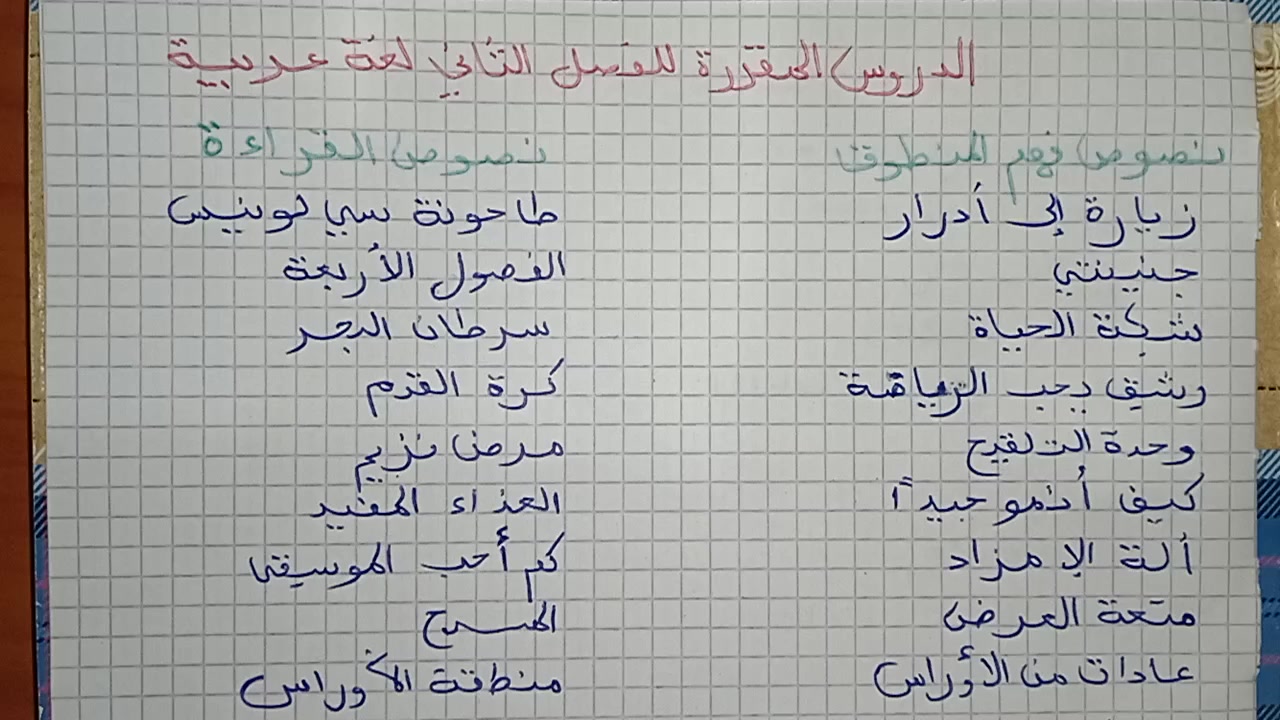 الدروس المقررة للفصل الثاني لغة عربية
نصوص فهم المنطوق نصوص القراءة
زيارة إلى أدرار طاحونة سي لونيس
جنينتي الفصول الأربعة
شبكة الحياة سرطان البحر
رشيق يحب الرياضة كرة القدم
وحدة التلقيح مرض نزيم
كيف أنمو جيدًا الغذاء المفيد
ألة الإمزاد كم أحب الموسيقى
متعة العرض المسرح
عادات من الأوراس منطقة الأوراس